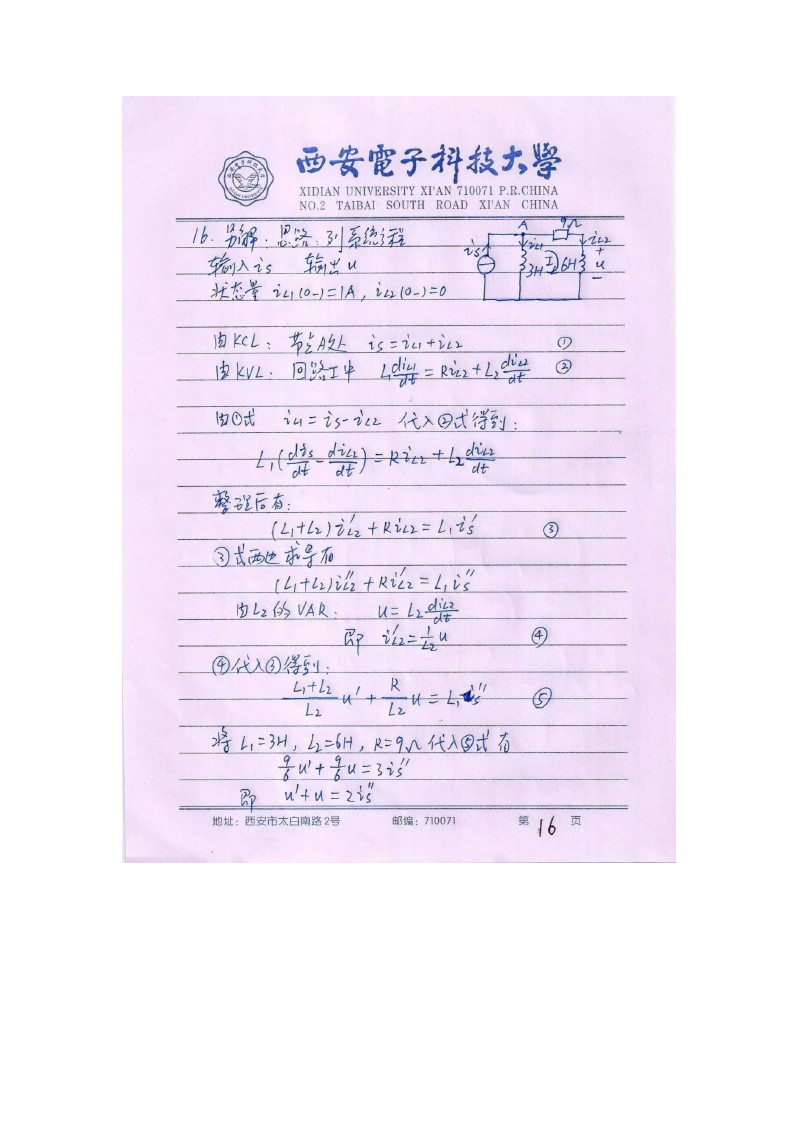 西安電子科技大學
XIDIAN UNIVERSITY XI'AN 710071 P.R.CHINA
NO.2 TAIBAI SOUTH ROAD XI'AN CHINA
16. 另解: 思路: 列系统方程
输入is 输出u
状态量 iL1(0-)=1A, iL2(0-)=0
A 9Ω
is iL1 iL2
3H I 6H + u -
由KCL: 节点A处 is=iL1+iL2 ①
由KVL: 回路I中 L diL1/dt = RiL2+L2 diL2/dt ②
由①式 iL1=is-iL2 代入②式得到:
L1(dis/dt - diL2/dt) = RiL2+L2 diL2/dt
整理后有:
(L1+L2)i'L2+RiL2=L1i's ③
③式两边求导有
(L1+L2)i''L2+Ri'L2=L1i''s
由L2的VAR: u=L2 diL2/dt
即 i'L2=1/L2 u ④
④代入③得到:
L1+L2/L2 u' + R/L2 u = L1i''s ⑤
将L1=3H, L2=6H, R=9Ω代入⑤式有
9/6 u'+9/6 u=3i''s
即 u'+u=2i''s
地址: 西安市太白南路2号 邮编: 710071 第 16 页